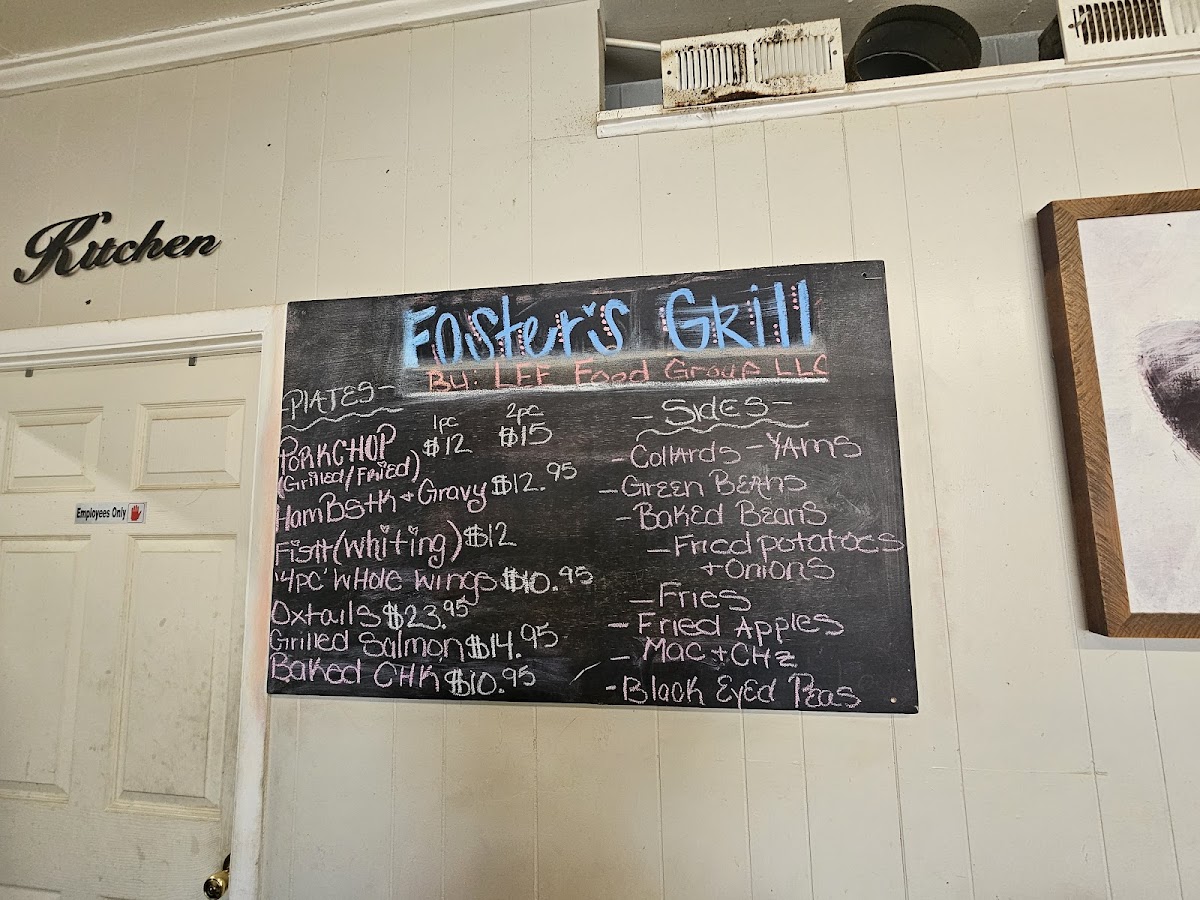 Kitchen
Employees Only
Foster's Grill
By: LFF Food Group LLC
-PlATES-
1pc 2pc
PORKCHOP $12 $15
(Grilled/Fried)
HamBstk + Gravy $12.95
Fish (whiting) $12
'4pc' WHole wings $10.95
Oxtails $23.95
Grilled Salmon $14.95
Baked CHK $10.95
- SidES -
- Collards - YAMS
- GREEN BEANS
- Baked Beans
- Fried potatoes
+ Onions
- Fries
- Fried Apples
- Mac + CHz
- Black Eyed Peas